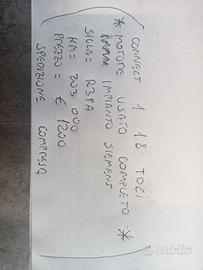 CONNECT 1 1.8 TDCI
* MOTORE USATO COMPLETO *
IMPIANTO SIEMENT
SIGLA = R3PA
KM = 203 000
PREZZO = € 1200
SPEDIZIONE COMPRESA
subito